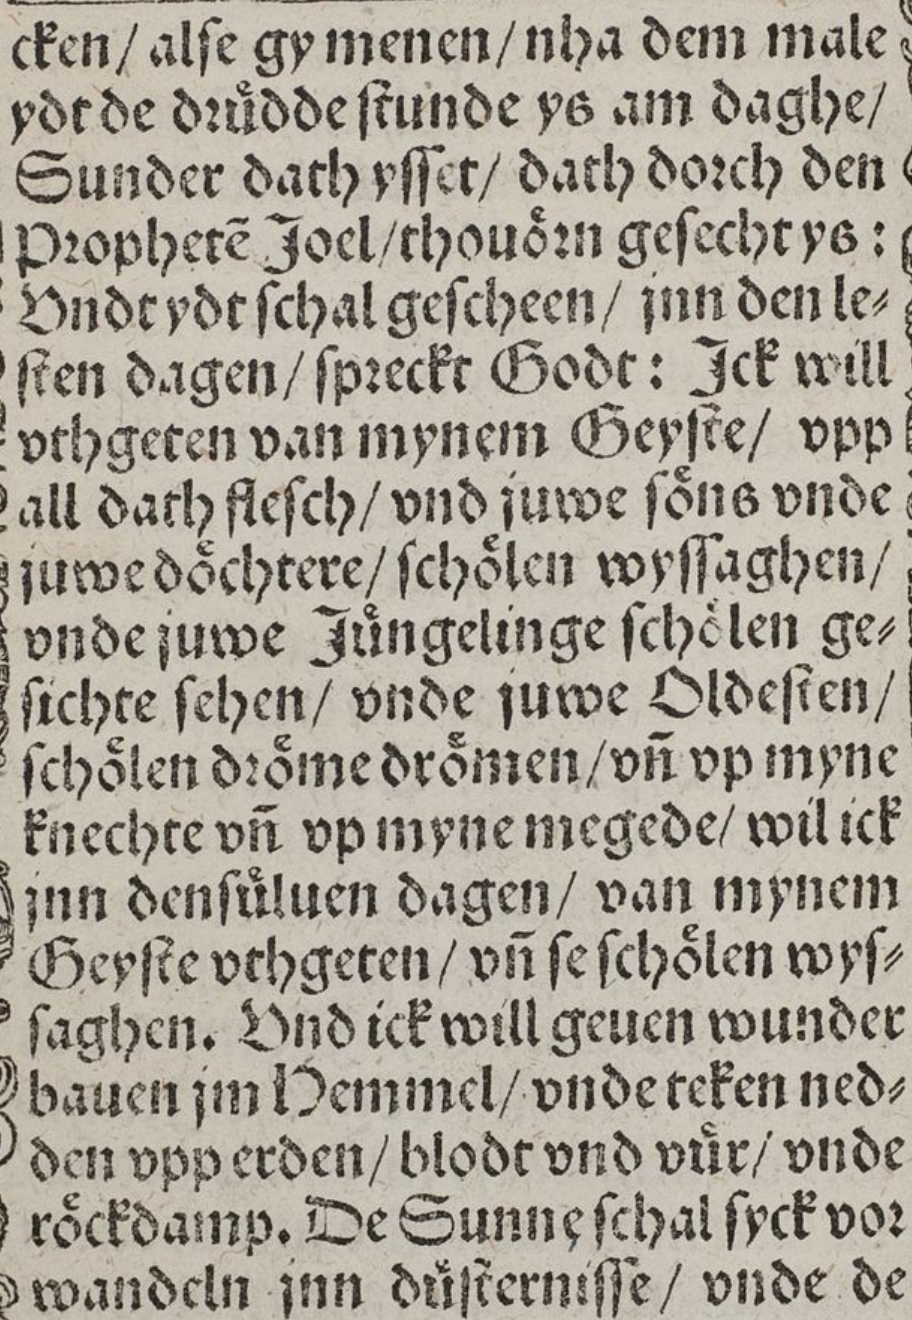 cken/ alſe gy menen/ nha dem male
ydt de druͤdde ſtunde ys am daghe/
Sunder dath yſſet/ dath dorch den
Prophetē Joel/ thouoͤrn geſecht ys:
Vndt ydt ſchal geſcheen/ jnn den le⸗
ſten dagen/ ſpreckt Godt: Ick will
vthgeten van mynem Geyſte/ vpp
all dath fleſch/ vnd juwe ſoͤns vnde
juwe doͤchtere/ ſchoͤlen wyſſaghen/
vnde juwe Juͤngelinge ſchoͤlen ge⸗
ſichte ſehen/ vnde juwe Oldeſten/
ſchoͤlen droͤme droͤmen/ vn̄ vp myne
knechte vn̄ vp myne megede/ wil ick
jnn denſuͤluen dagen/ van mynem
Geyſte vthgeten/ vn̄ ſe ſchoͤlen wyſ⸗
ſaghen. Vnd ick will geuen wunder
bauen jm Hemmel/ vnde teken ned⸗
den vpp erden/ blodt vnd vuͤr/ vnde
roͤckdamp. De Sunne ſchal ſyck vor
wandeln jnn duͤſterniſſe/ vnde de